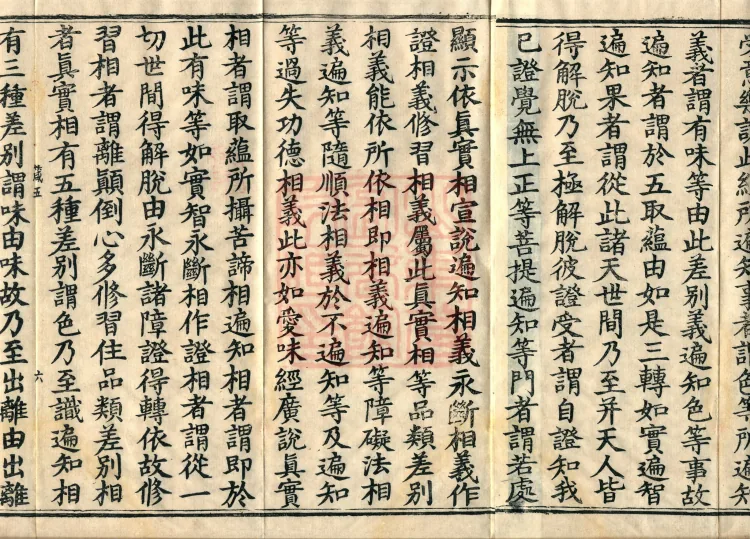 總說此經所遍知事者謂色等所遍知
義者謂有味等由此差別義遍知色等事故
遍知者謂於五取蘊由如是三轉如實遍智
遍知果者謂從此諸天世間乃至并天人皆
得解脫乃至極解脫彼證受者謂自證知我
已證覺無上正等菩提遍知等門者謂若處
顯示依眞實相宣說遍知相義永斷相義作
證相義修習相義屬此眞實相等品類差別
相義能依所依相即相義遍知等障礙法相
義遍知等隨順法相義於不遍知等及遍知
等過失功德相義此亦如愛味經廣說眞實
相者謂取蘊所攝苦諦相遍知相者謂即於
此有味等如實智永斷相作證相者謂從一
切世間得解脫由永斷諸障證得轉依故修
習相者謂離顚倒心多修習住品類差別相
者眞實相有五種差別謂色乃至識遍知相
五
六
有三種差別謂味由味故乃至出離由出離